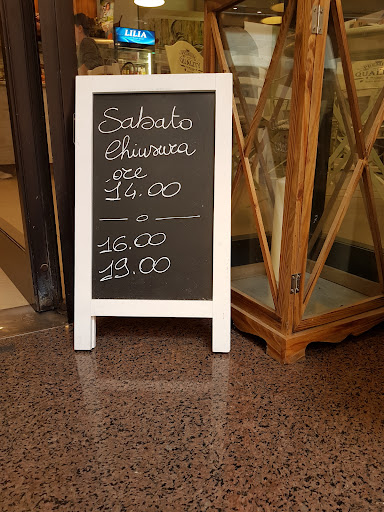 LILIA
Sabato
Chiusura
ore
14.00
— o —
16.00
19.00
QUALITY